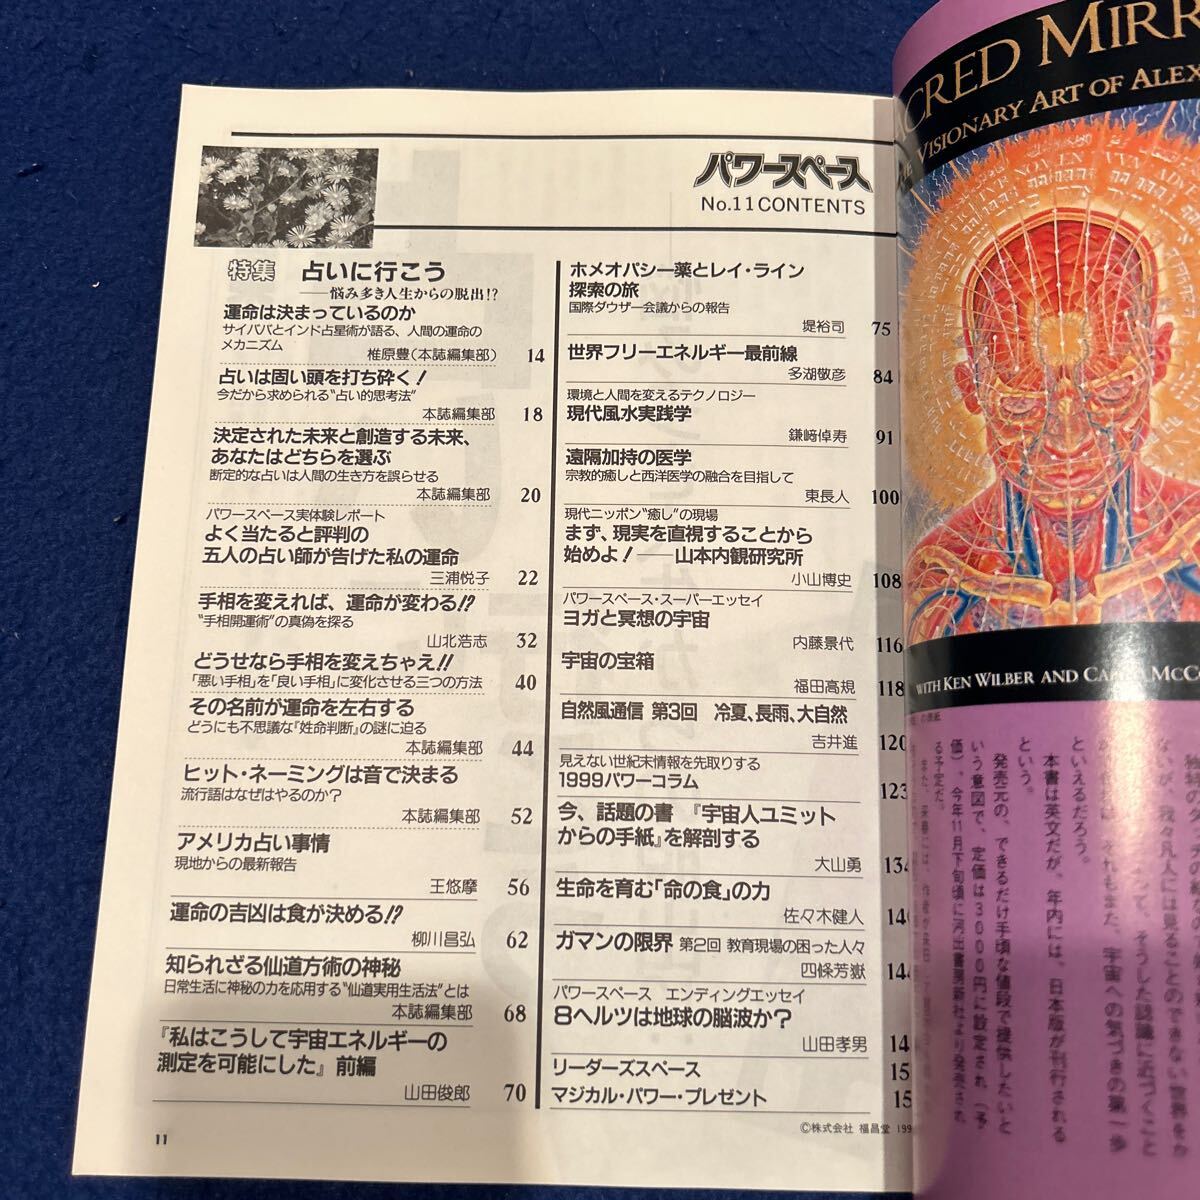 パワースペース
No.11 CONTENTS
特集 占いに行こう
――悩み多き人生からの脱出!?
運命は決まっているのか
サイババとインド占星術が語る、人間の運命の
メカニズム
椎原豊(本誌編集部) 14
占いは固い頭を打ち砕く!
今だから求められる“占い的思考法”
本誌編集部 18
決定された未来と創造する未来、
あなたはどちらを選ぶ
断定的な占いは人間の生き方を誤らせる
本誌編集部 20
パワースペース実体験レポート
よく当たると評判の
五人の占い師が告げた私の運命
三浦悦子 22
手相を変えれば、運命が変わる!?
“手相開運術”の真偽を探る
山北浩志 32
どうせなら手相を変えちゃえ!!
「悪い手相」を「良い手相」に変化させる三つの方法 40
その名前が運命を左右する
どうにも不思議な『姓命判断』の謎に迫る
本誌編集部 44
ヒット・ネーミングは音で決まる
流行語はなぜはやるのか?
本誌編集部 52
アメリカ占い事情
現地からの最新報告
王悠摩 56
運命の吉凶は食が決める!?
柳川昌弘 62
知られざる仙道方術の神秘
日常生活に神秘の力を応用する“仙道実用生活法”とは
本誌編集部 68
『私はこうして宇宙エネルギーの
測定を可能にした』前編
山田俊郎 70
ホメオパシー薬とレイ・ライン
探索の旅
国際ダウザー会議からの報告
堤裕司 75
世界フリーエネルギー最前線
多湖敬彦 84
環境と人間を変えるテクノロジー
現代風水実践学
鎌﨑倬寿 91
遠隔加持の医学
宗教的癒しと西洋医学の融合を目指して
東長人 100
現代ニッポン“癒し”の現場
まず、現実を直視することから
始めよ!――山本内観研究所
小山博史 108
パワースペース・スーパーエッセイ
ヨガと冥想の宇宙
内藤景代 116
宇宙の宝箱
福田高規 118
自然風通信 第3回 冷夏、長雨、大自然
吉井進 120
見えない世紀末情報を先取りする
1999パワーコラム
123
今、話題の書 『宇宙人ユミット
からの手紙』を解剖する
大山勇 134
生命を育む「命の食」の力
佐々木健人
ガマンの限界 第2回 教育現場の困った人々
四條芳嶽 144
パワースペース エンディングエッセイ
8ヘルツは地球の脳波か?
山田孝男
リーダーズスペース
マジカル・パワー・プレゼント
©株式会社 福昌堂 199
11
ACRED MIRR
VISIONARY ART OF ALEX
WITH KEN WILBER AND
ないが、我々凡人には見ることのできない世界をか
といえるだろう。
本書は英文だが、年内には、日本版が刊行される
という。
発売元の、できるだけ手頃な値段で提供したいと
いう意図で、定価は3000円に設定され(予
価)、今年11月下旬頃に河出書房新社より発売され
る予定だ。